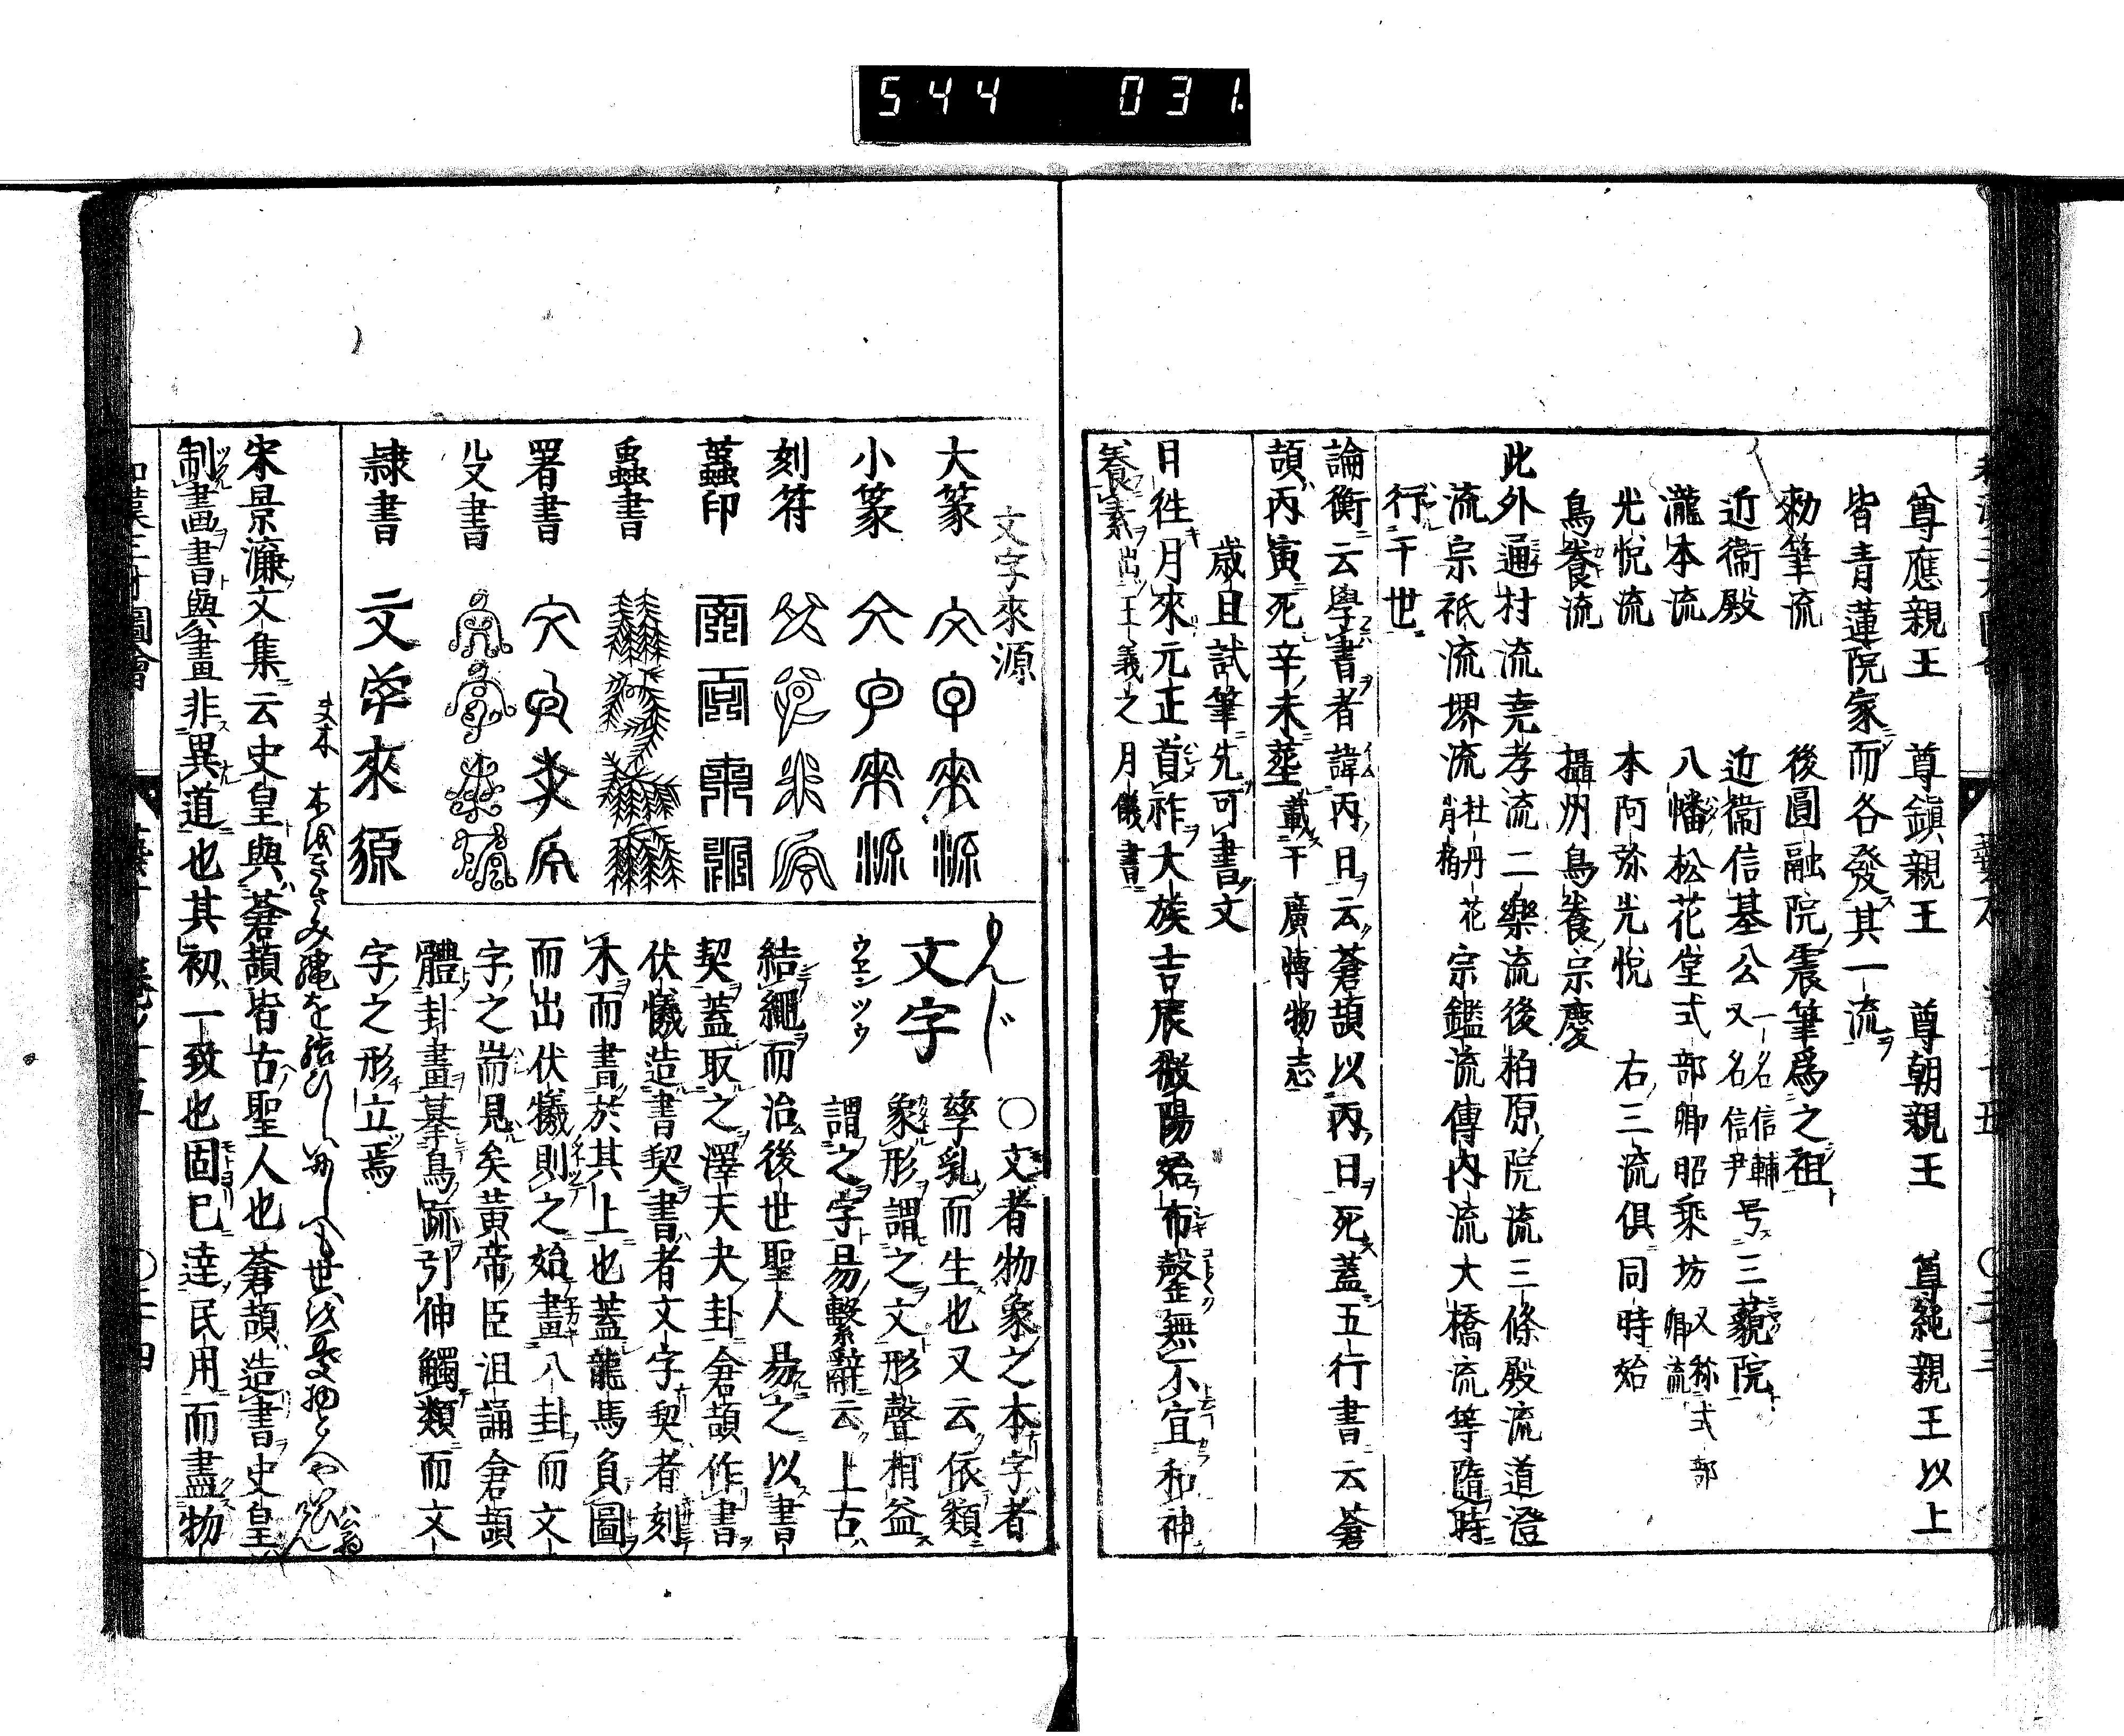 544 031
尊應親王 尊鎭親王 尊朝親王 尊純親王以上
皆青蓮院家而各發其一流
勅筆流 後圓融院震筆爲之祖
近衞殿 近衞信基公 一名信輔 又名信尹 号三藐院
瀧本流 八幡松花堂式部卿昭乘坊 又称式部卿流
光悦流 本阿弥光悦 右三流俱同時始
鳥養流 攝州鳥養宗慶
此外逼村流尭孝流二樂流後柏原院流三條殿流道澄
流宗祇流堺流 杜丹花肖栢 宗鑑流傳内流大橋流等隨時
行于世
論衡云學書者諱丙日云蒼頡以丙日死蓋五行書云蒼
頡丙寅死辛未塟 載于廣博物志
歳旦試筆先可書文
日徃月來元正首祚大族吉辰微陽始布罄無不宜和神
養素 出王羲之月儀書
文字來源
大篆 文字來源
小篆 文字來源
刻符 文字來源
蟲印 文字來源
蟲書 文字來源
署書 文字來源
殳書 文字來源
隷書 文字來源
もんじ
文字
ウエンツウ
〇文者物象之本字者
孳乳而生也又云依類
象形謂之文形聲相益
謂之字易繫辭云上古
結繩而治後世聖人易之以書
契蓋取之澤天夬卦倉頡作書
伏犧造書契書者文字契者刻
木而書於其上也蓋龍馬負圖
而出伏犧則之始畫八卦而文
字之耑見矣黄帝臣沮誦倉頡
體卦畫摹鳥跡引伸觸類而文
字之形立焉
宋景濂文集云史皇與蒼頡皆古聖人也蒼頡造書史皇
制畫書與畫非異道也其初一致也固已達民用而盡物